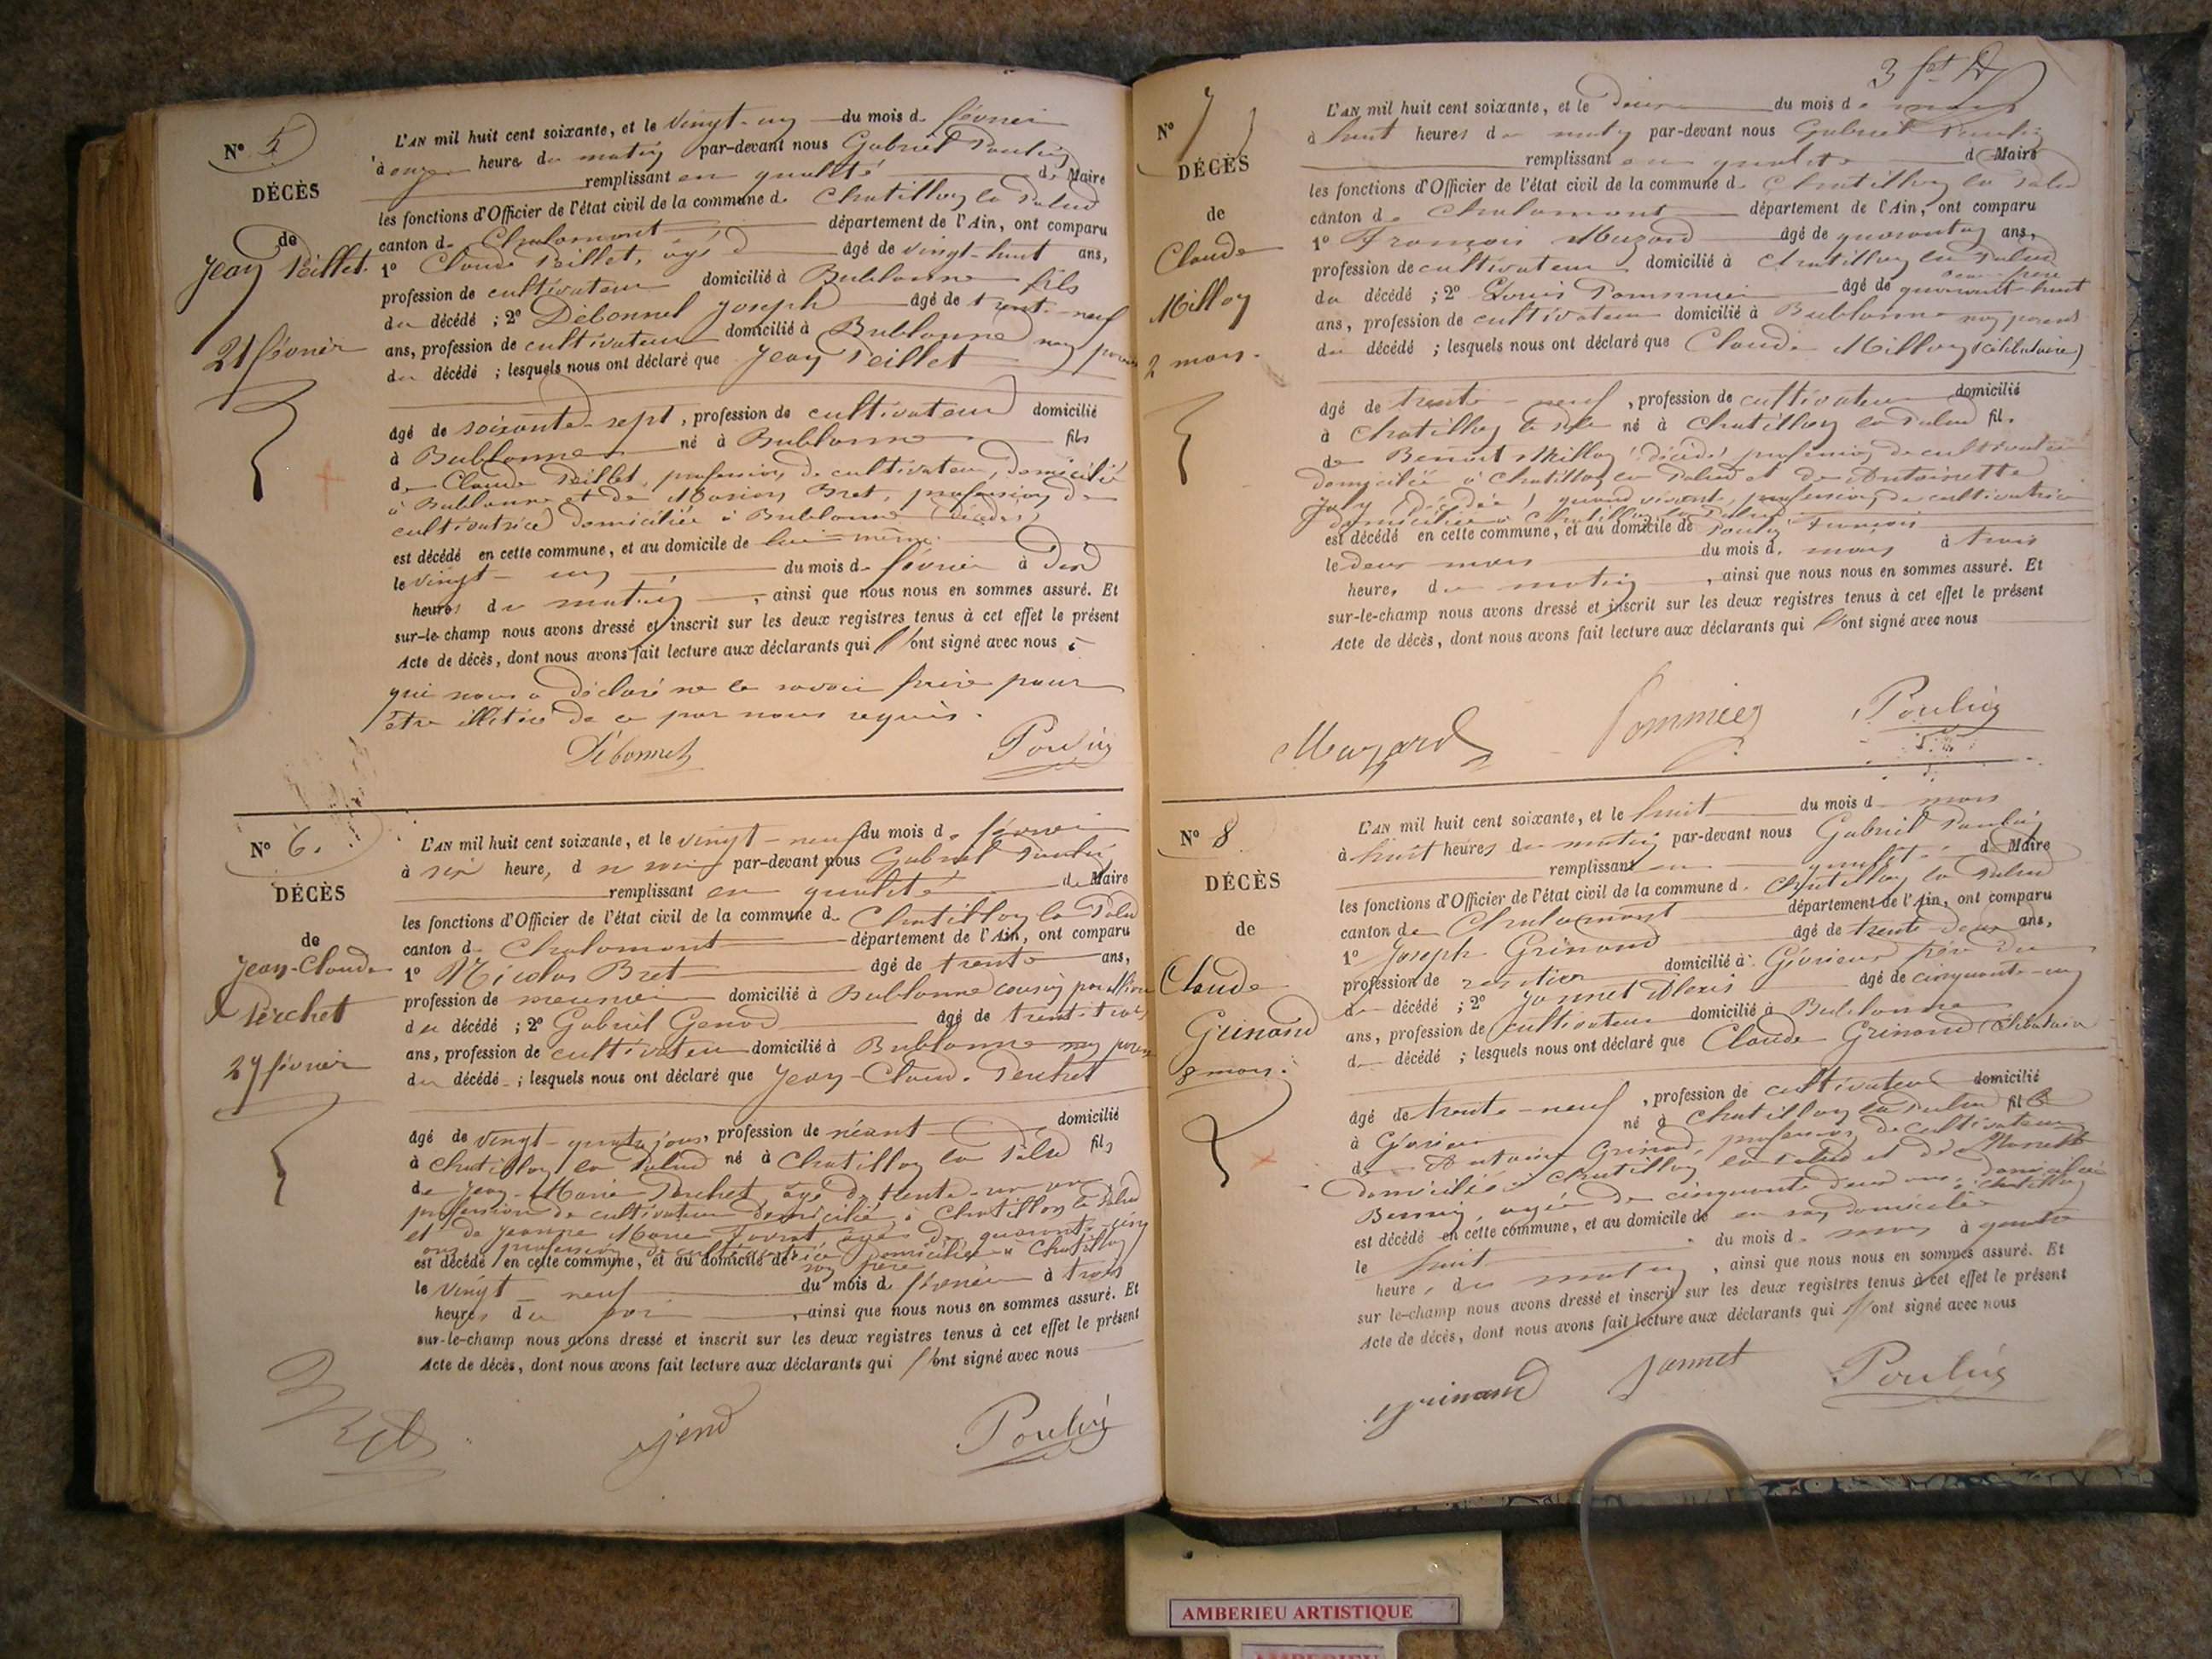 N° 5
DÉCÈS
de
Jean Peillet
21 février
L'AN mil huit cent soixante, et le vingt-un du mois de février
à onze heures du matin par-devant nous Gabriel Poulin
remplissant en qualité de Maire
les fonctions d'Officier de l'état civil de la commune de Chatillon la Palud
canton de Chalamont département de l'Ain, ont comparu
1° Claude Peillet, âgé d âgé de vingt-huit ans,
profession de cultivateur domicilié à Bublanne fils
du décédé ; 2° Débonnel Joseph âgé de trente-neuf
ans, profession de cultivateur domicilié à Bublanne non parent
du décédé ; lesquels nous ont déclaré que Jean Peillet
âgé de soixante-sept, profession de cultivateur domicilié
à Bublanne né à Bublanne fils
de Claude Peillet, profession de cultivateur, domicilié
à Bublanne et de Marion Bret, profession de
cultivatrice domiciliée à Bublanne (décédés)
est décédé en cette commune, et au domicile de lui-même
le vingt-un du mois de février à dix
heures du matin, ainsi que nous nous en sommes assuré. Et
sur-le-champ nous avons dressé et inscrit sur les deux registres tenus à cet effet le présent
Acte de décès, dont nous avons fait lecture aux déclarants qui ont signé avec nous
qui nous a déclaré ne le savoir faire pour
être illétré de ce par nous requis.
Débonnel Poulin
N° 6.
DÉCÈS
de
Jean-Claude
Perchet
29 février
L'AN mil huit cent soixante, et le vingt-neuf du mois de février
à six heures, du soir par-devant nous Gabriel Poulin
remplissant en qualité de Maire
les fonctions d'Officier de l'état civil de la commune de Chatillon la Palud
canton de Chalamont département de l'Ain, ont comparu
1° Nicolas Bret âgé de trente ans,
profession de meunier domicilié à Bublanne cousin par alliance
du décédé ; 2° Gabriel Genod âgé de trente-trois
ans, profession de cultivateur domicilié à Bublanne non parent
du décédé ; lesquels nous ont déclaré que Jean-Claude Perchet
âgé de vingt-quatre jours, profession de néant domicilié
à Chatillon la Palud né à Chatillon la Palud fils
de Jean-Marie Perchet, âgé de trente-un ans
profession de cultivateur domicilié à Chatillon la Palud
et de Jeanne Marie âgée de quarante-cinq
ans profession de cultivatrice domiciliée à Chatillon
est décédé en cette commune, et au domicile de son père
le vingt-neuf du mois de février à trois
heures du soir, ainsi que nous nous en sommes assuré. Et
sur-le-champ nous avons dressé et inscrit sur les deux registres tenus à cet effet le présent
Acte de décès, dont nous avons fait lecture aux déclarants qui ont signé avec nous
Bret jend Poulin
N° 7
DÉCÈS
de
Claude
Milloy
2 mars.
L'AN mil huit cent soixante, et le deux du mois de mars
à huit heures du matin par-devant nous Gabriel Poulin
remplissant en qualité de Maire
les fonctions d'Officier de l'état civil de la commune de Chatillon la Palud
canton de Chalamont département de l'Ain, ont comparu
1° François Mazard âgé de quarante ans,
profession de cultivateur domicilié à Chatillon la Palud beau-frère
du décédé ; 2° Louis Pommier âgé de quarante-huit
ans, profession de cultivateur domicilié à Bublanne non parent
du décédé ; lesquels nous ont déclaré que Claude Milloy (célibataire)
âgé de trente-neuf, profession de cultivateur domicilié
à Chatillon la Palud né à Chatillon la Palud fils
de Benoit Milloy (décédé) profession de cultivateur
domicilié à Chatillon la Palud et de Antoinette
Joly (décédée) quand vivante, profession de cultivatrice
domiciliée à Chatillon la Palud
est décédé en cette commune, et au domicile de Poulin François
le deux mars du mois de mars à trois
heures du matin, ainsi que nous nous en sommes assuré. Et
sur-le-champ nous avons dressé et inscrit sur les deux registres tenus à cet effet le présent
Acte de décès, dont nous avons fait lecture aux déclarants qui ont signé avec nous
Mazard Pommier Poulin
N° 8
DÉCÈS
de
Claude
Grinand
8 mars.
L'AN mil huit cent soixante, et le huit du mois de mars
à huit heures du matin par-devant nous Gabriel Poulin
remplissant en qualité de Maire
les fonctions d'Officier de l'état civil de la commune de Chatillon la Palud
canton de Chalamont département de l'Ain, ont comparu
1° Joseph Grinand âgé de trente-deux ans,
profession de rentier domicilié à Gévrieux frère du
décédé ; 2° Jannet Alexis âgé de cinquante-un
ans, profession de cultivateur domicilié à Bublanne
d décédé ; lesquels nous ont déclaré que Claude Grinand célibataire
âgé de trente-neuf, profession de cultivateur domicilié
à Gévrieux né à Chatillon la Palud fils
de Antoine Grinand, profession de cultivateur
domicilié à Chatillon la Palud et de
âgée de cinquante-deux ans, domiciliée à Chatillon
est décédé en cette commune, et au domicile de en son domicile
le huit du mois de mars à quatre
heures du matin, ainsi que nous nous en sommes assuré. Et
sur le-champ nous avons dressé et inscrit sur les deux registres tenus à cet effet le présent
Acte de décès, dont nous avons fait lecture aux déclarants qui ont signé avec nous
grinand Jannet Poulin
AMBERIEU ARTISTIQUE
AMBERIEU